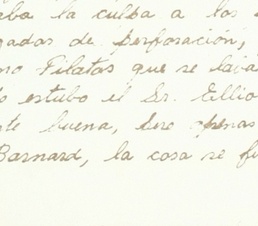 aba la culba a los
gados de perforación,
mo Pilatos que se lava
o estubo el Sr. Ellio
te buena, pero apenas
Barnard, la cosa se fu